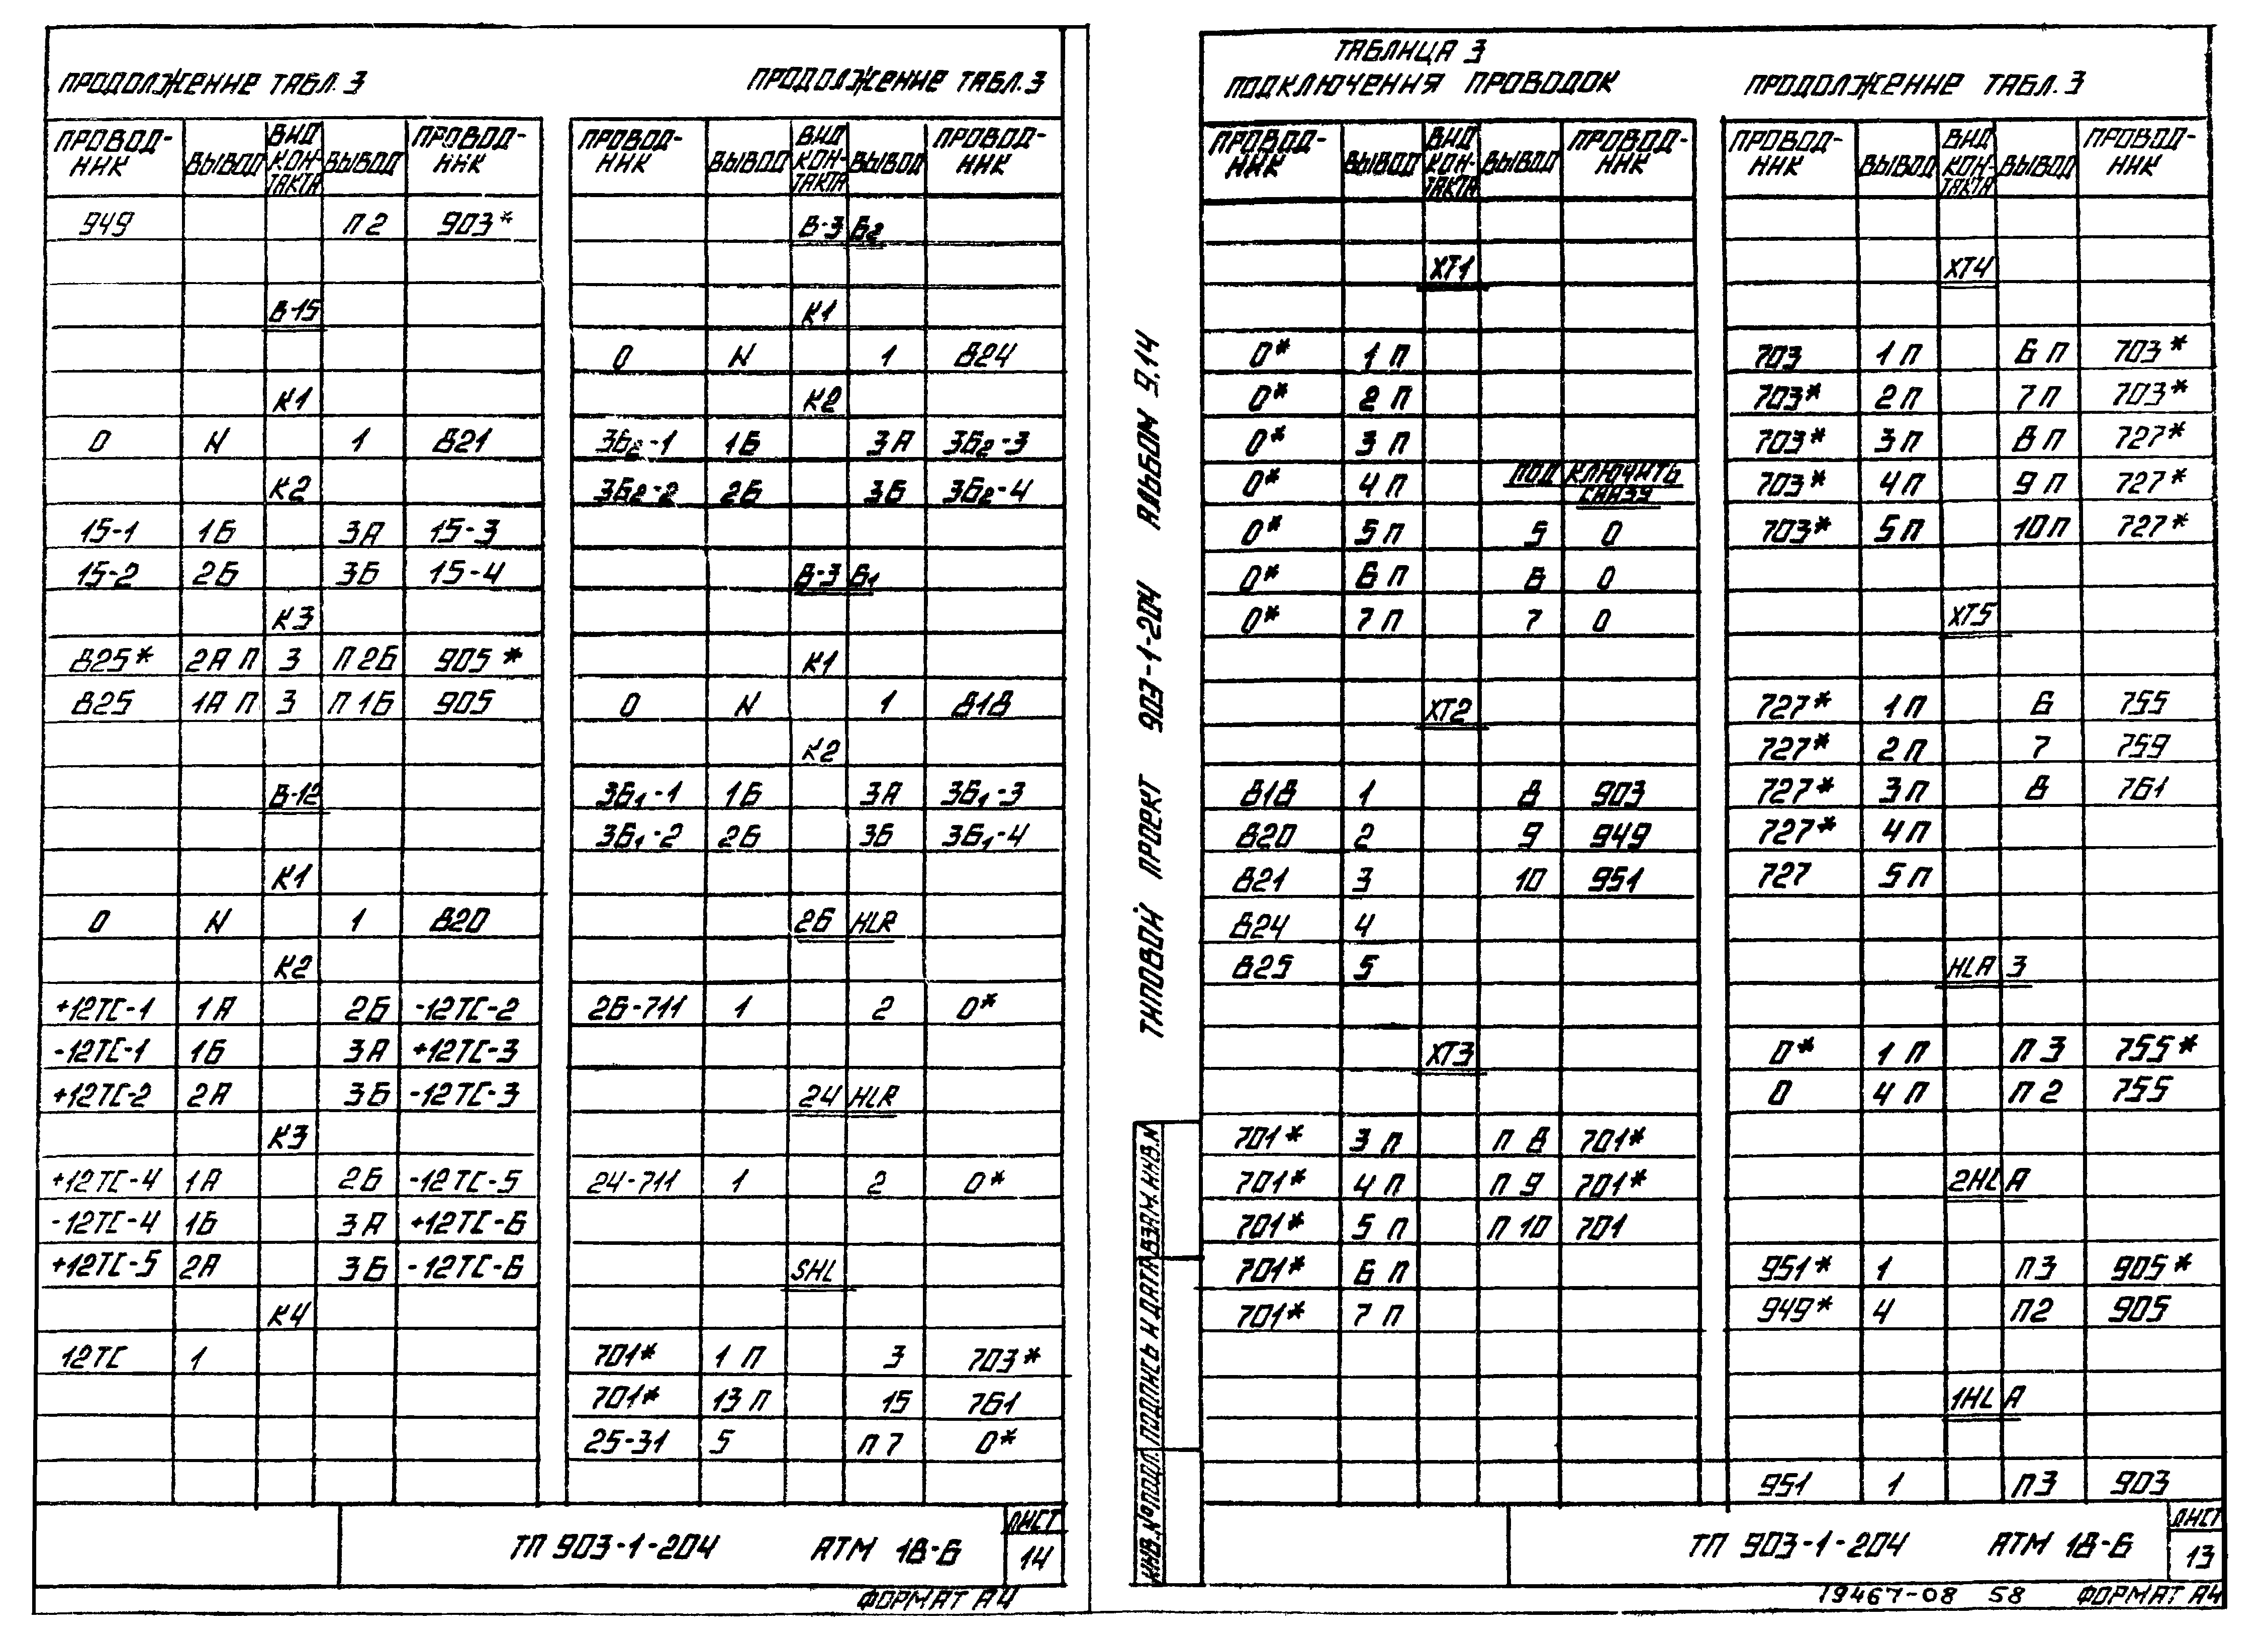 ПРОДОЛЖЕНИЕ ТАБЛ. 3
ПРОВОД-НИК ВЫВОД ВИД КОН-ТАКТА ВЫВОД ПРОВОД-НИК
949 П 2 903*
В-15
К1
0 N 1 821
К2
15-1 1Б 3А 15-3
15-2 2Б 3Б 15-4
К3
825* 2А П 3 П 2Б 905*
825 1А П 3 П 1Б 905
В-12
К1
0 N 1 820
К2
+12ТС-1 1А 2Б -12ТС-2
-12ТС-1 1Б 3А +12ТС-3
+12ТС-2 2А 3Б -12ТС-3
К3
+12ТС-4 1А 2Б -12ТС-5
-12ТС-4 1Б 3А +12ТС-6
+12ТС-5 2А 3Б -12ТС-6
К4
12ТС 1
ПРОДОЛЖЕНИЕ ТАБЛ. 3
ПРОВОД-НИК ВЫВОД ВИД КОН-ТАКТА ВЫВОД ПРОВОД-НИК
В-3 Б2
К1
0 N 1 824
К2
3Б2-1 1Б 3А 3Б2-3
3Б2-2 2Б 3Б 3Б2-4
В-3 Б1
К1
0 N 1 818
К2
3Б1-1 1Б 3А 3Б1-3
3Б1-2 2Б 3Б 3Б1-4
26 HLR
26-711 1 2 0*
24 HLR
24-711 1 2 0*
SHL
701* 1 П 3 703*
701* 13 П 15 761
25-31 5 П 7 0*
ТП 903-1-204 АТМ 18-6
ЛИСТ
14
ФОРМАТ А4
ТИПОВОЙ ПРОЕКТ 903-1-204 АЛЬБОМ 9.14
ИНВ. № ПОДЛ. ПОДПИСЬ И ДАТА ВЗАМ. ИНВ. №
ТАБЛИЦА 3
ПОДКЛЮЧЕНИЯ ПРОВОДОК
ПРОВОД-НИК ВЫВОД ВИД КОН-ТАКТА ВЫВОД ПРОВОД-НИК
ХТ1
0* 1 П
0* 2 П
0* 3 П
0* 4 П ПОДКЛЮЧИТЬ
СНИЗУ
0* 5 П 5 0
0* 6 П 6 0
0* 7 П 7 0
ХТ2
818 1 8 903
820 2 9 949
821 3 10 951
824 4
825 5
ХТ3
701* 3 П П 8 701*
701* 4 П П 9 701*
701* 5 П П 10 701
701* 6 П
701* 7 П
ПРОДОЛЖЕНИЕ ТАБЛ. 3
ПРОВОД-НИК ВЫВОД ВИД КОН-ТАКТА ВЫВОД ПРОВОД-НИК
ХТ4
703 1 П 6 П 703*
703* 2 П 7 П 703*
703* 3 П 8 П 727*
703* 4 П 9 П 727*
703* 5 П 10 П 727*
ХТ5
727* 1 П 6 755
727* 2 П 7 759
727* 3 П 8 761
727* 4 П
727 5 П
HLA 3
0* 1 П П 3 755*
0 4 П П 2 755
2HLA
951* 1 П3 905*
949* 4 П2 905
1HLA
951 1 П3 903
ТП 903-1-204 АТМ 18-6
ЛИСТ
13
19467-08 58 ФОРМАТ А4